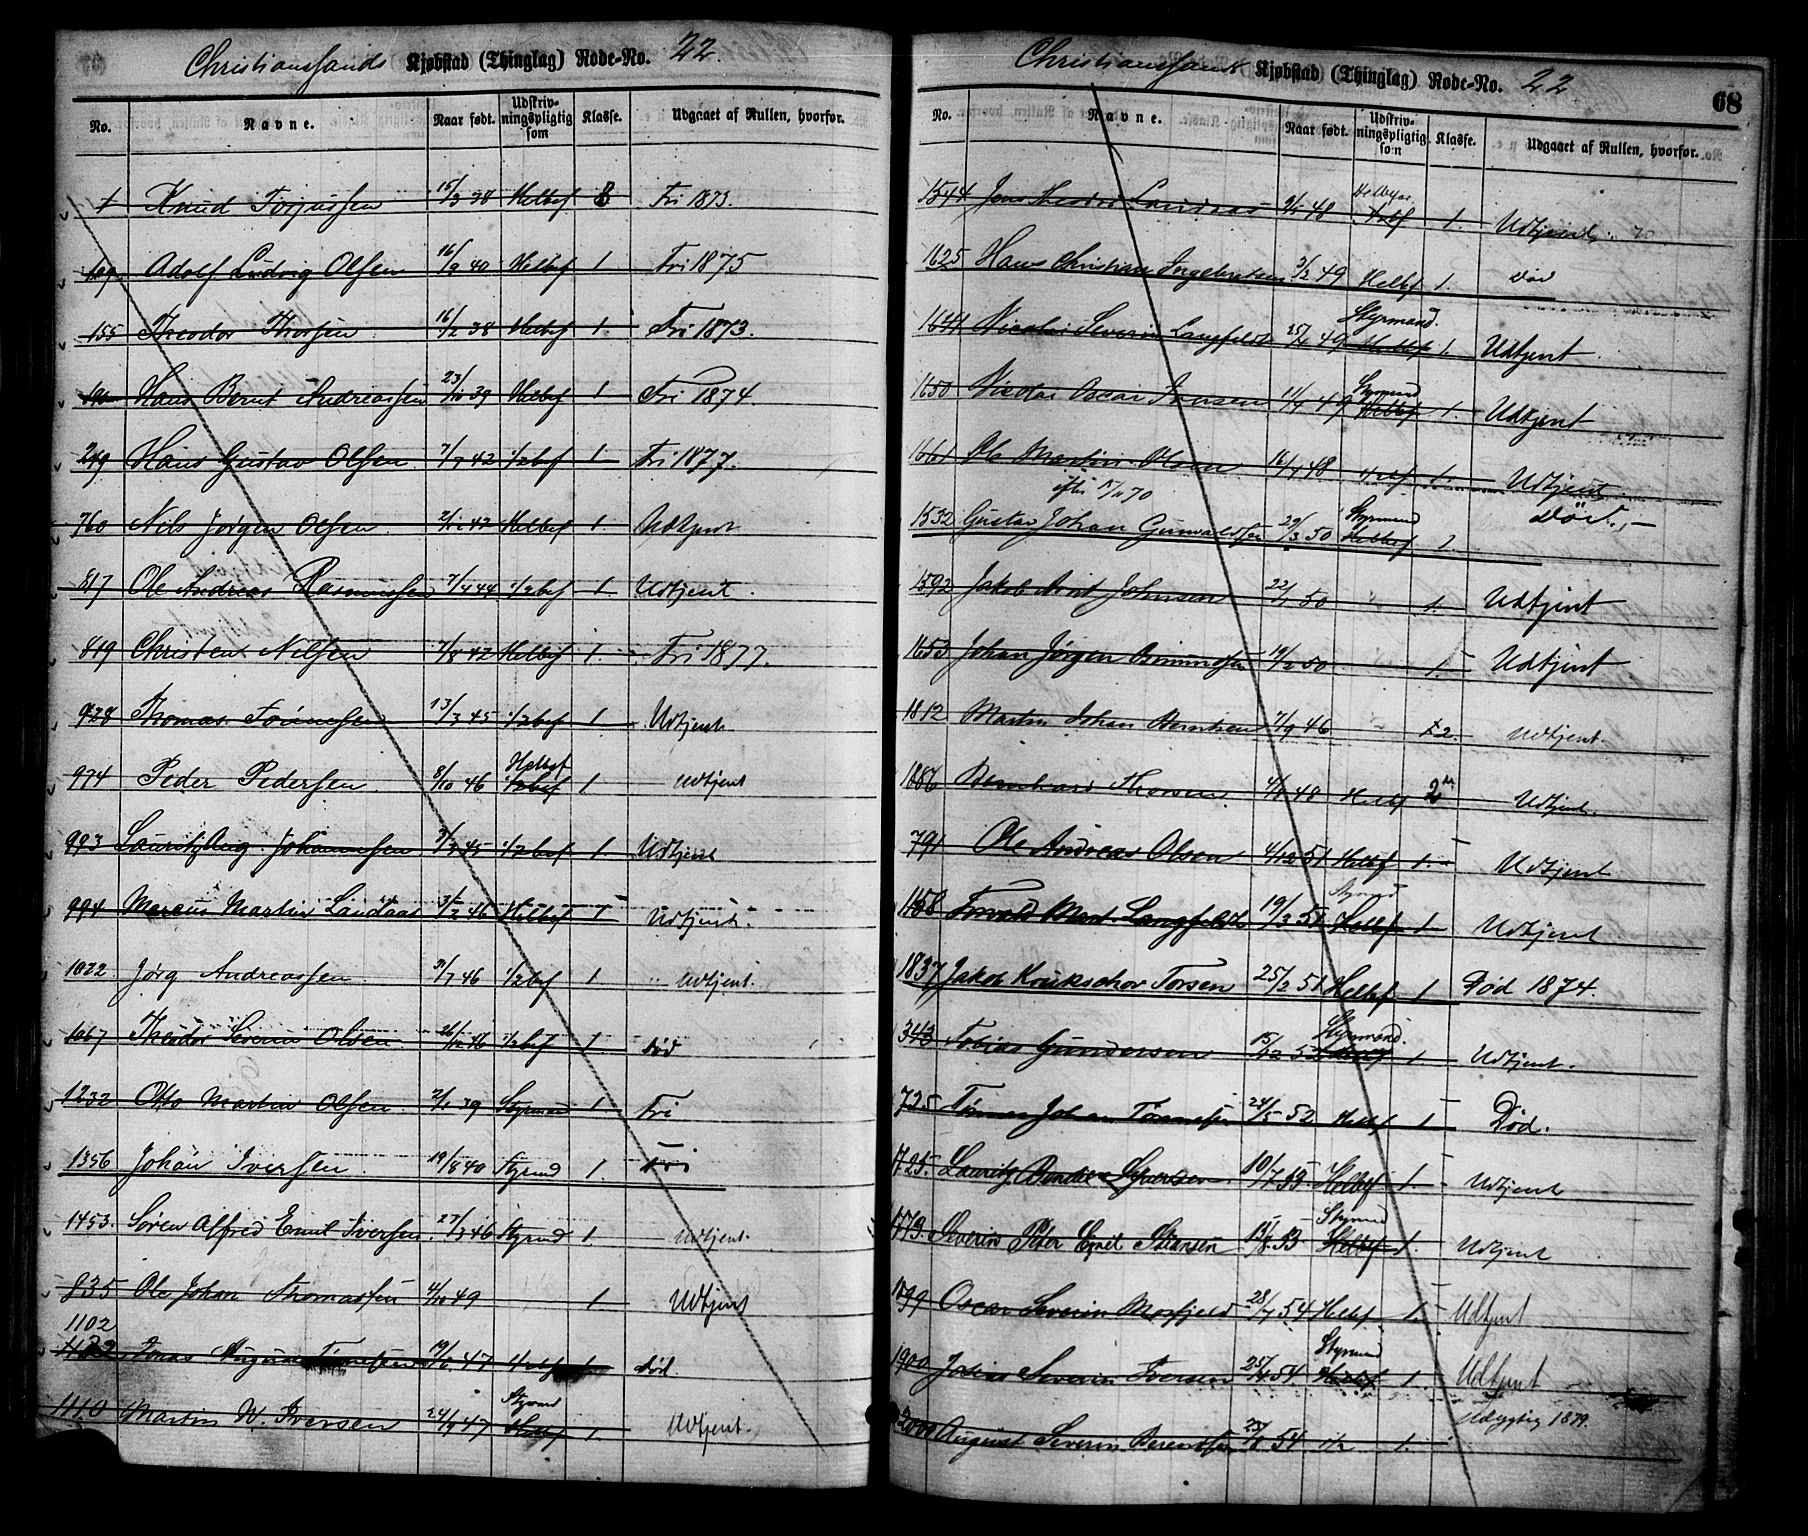 Christianssands Kjøbstad (Thinglag) Rode-No. 22.
No. Navne. Naar født. Udskrivningspligtig som Klasse. Udgaaet af Rullen, hvorfor.
1 Knud Torjussen 15/3 38 Helbef Fri 1873.
109 Adolf Ludvig Olsen 16/9 40 Helbef 1 Fri 1875
155 Theodor Thorsen 16/2 38 Helbef 1. Fri 1873.
Hans Bernt Andreassen 23/10 39 Helbef 1 Fri 1874.
249 Hans Gustav Olsen 7/7 42 1/2bef 1 Fri 1877.
760 Nils Jørgen Olsen 42 Helbef 1. Udtjent
817 Ole Andreas Rasmussen 7/4 44 1/2bef 1. Udtjent.
849 Christen Nilsen 7/8 42 Helbef 1. Fri 1877.
928 Thomas Tønnesen 13/3 45 1/2bef 1 Udtjent
974 Peder Pedersen 8/10 46 Helbef 1/2bef 1. Udtjent
993 Lauritz Aug. Johannesen 45 1/2bef 1. Udtjent
994 Marcus Martin Landaas 3/2 46 Helbef 1 Udtjent.
1022 Jørg Andreassen 46 1/2bef 1 Udtjent.
1067 Theodor Severin Olsen 26/10 46 1/2bef 1. død
1232 Otto Martin Olsen 2/1 39 Styrmand 1. Fri
1356 Johan Iversen 19/8 40 Styrmd 1. Fri
1453. Søren Alfred Emil Iversen 27/3 46 Styrmd 1. Udtjent.
835 Ole Johan Thomassen 4/10 49 1 Udtjent
1102
Jonas August Tønnesen 47 1 død.
1110 Martin W. Iversen 24/9 47 Styrmd Helbef 1. Udtjent.
Christianssands Kjøbstad (Thinglag) Rode-No. 22. 68
No. Navne. Naar født. Udskrivningspligtig som Klasse. Udgaaet af Rullen, hvorfor.
1544 Jens Theodor Landaas 48 Helbef 1. Udtjent.
1625 Hans Christian Ingebretsen 3/2 49 Helbf 1. død
1644 Nicolai Severin Langfeldt 25/6 49 Styrmand. Helbef 1. Udtjent
1650 Nicolai Oscar Iversen 11/4 49 Styrmd Helbef 1. Udtjent
1661 Ole Martin Olsen 16/4 48 1. Udtjent
1532 Gustav Johan Gunvaldsen 29/3 50 Styrmand Helbef 1. Død.
1592 Jakob Johnsen 22/1 50 1. Udtjent
1653 Johan Jørgen 19/2 50 1. Udtjent
1812 Martin Johan Berntsen 7/9 46 2. Udtjent.
1886 Bernhard Thorsen 48 Helbf 2 Udtjent.
791 Ole Andreas Olsen 4/12 51 Helbef 1. Udtjent
1158 Torvald Mart. Langfeldt 19/3 51 Styrmd Helbef 1 Udtjent
1837 Jakob Torsen 25/2 51 Helbef 1 Død 1874.
343 Tobias Gundersen 15/12 52 Styrmand. 1. Udtjent.
725 Tønnes Johan Tønnesen 24/5 52 Helbf 1 Død.
1725. Lauritz 10/7 53 Helbef 1 Udtjent
1773. Severin Peder Emil 13/8 53 Styrmd Helbef 1. Udtjent
1899 Oscar Severin Mosfjeld 28/7 54 Helbef 1. Udtjent
1900 Severin Iversen 25/4 54. Styrmd Helbef 1. Udtjent
2000 August Severin Berentsen 23/8 54 1. Udygtig 1879.